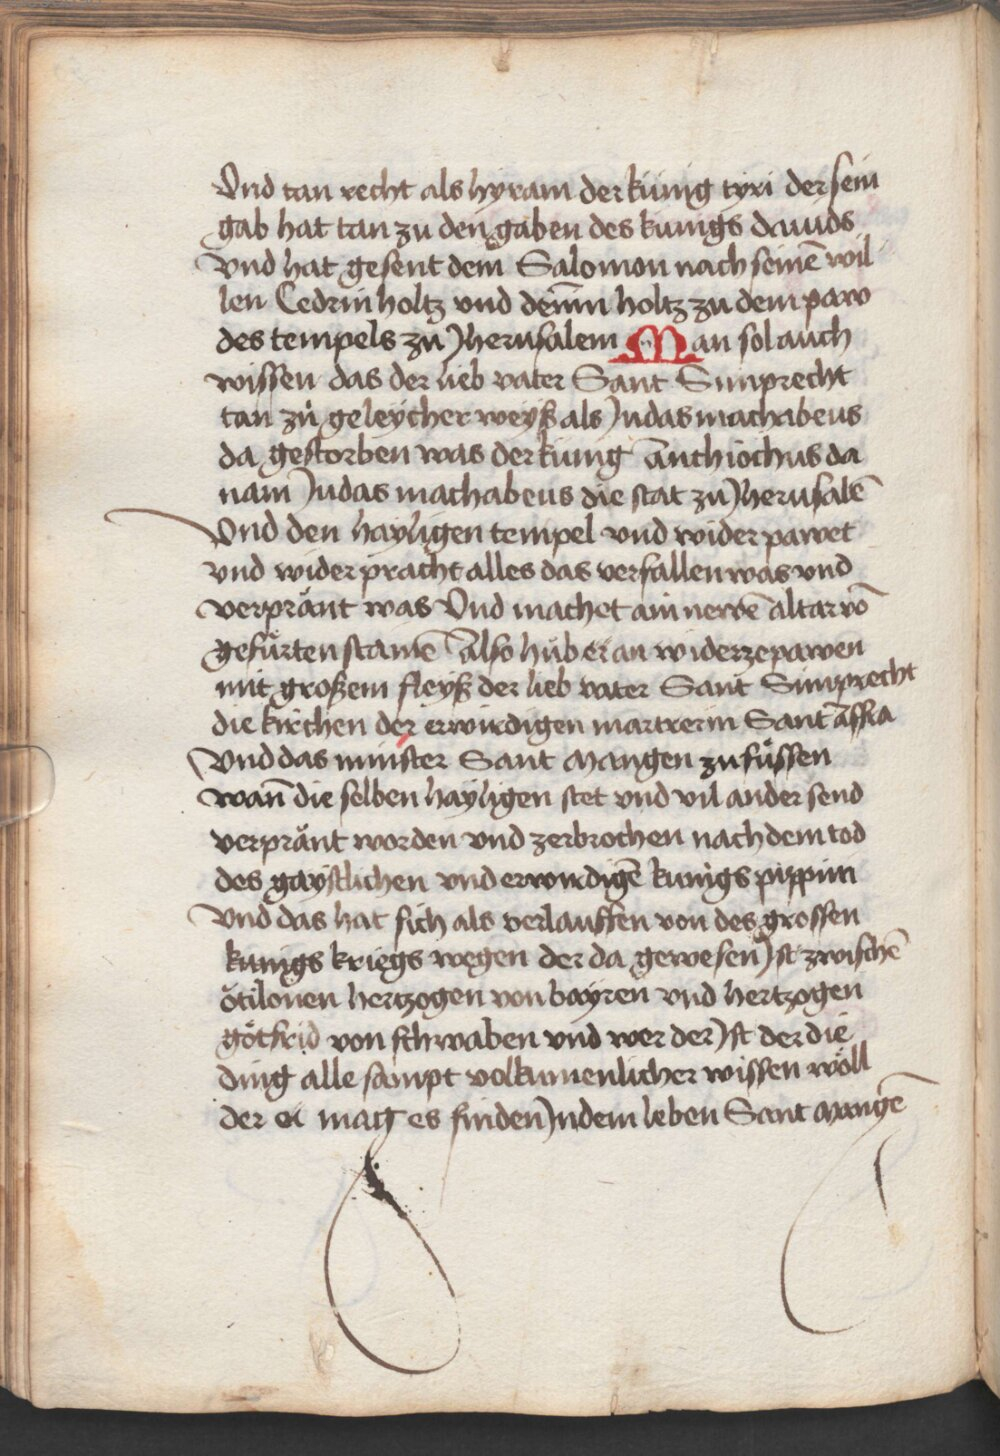 Vnd tan recht als hyram der künig tyri der sein
gab hat tan zu den gaben des kunigs dauids
vnd hat gesent dem Salomon nach seinē wil
len Cedrin holtz vnd holtz zu dem paw
des tempels zů Jherusalem Man sol auch
wissen das der lieb vater Sant Simprecht
tan zů geleycher weyß als Judas machabeus
da gestorben was der künig anthiochus da
nam Judas machabeus die stat zů Jherusalē
Vnd den hayligen tempel vnd wider pawet
vnd wider pracht alles das verfallen was vnd
verpränt was Vnd machet ain newē altar vō
gefürten stainē Also hůb er an wider ze pawen
mit großem fleyß der lieb vater Sant Simprecht
die kirchen der erwirdigen martrerin Sant affra
Vnd das münster Sant Mangen zu füssen
wañ die selben hayligen stet vnd vil ander send
verpränt worden vnd zerbrochen nach dem tod
des gaystlichen vnd erwirdigē kunigs pippini
Vnd das hat sich als verlauffen von des grossen
kunigs kriegs wegen der da gewesen Jst zwischē
ötilonen hertzogen von bayren vnd hertzogen
götfrid von schwaben vnd wer der Jst der die
ding alle sampt volkumenlicher wissen wöll
der mag es finden Jn dem leben Sant Mangē